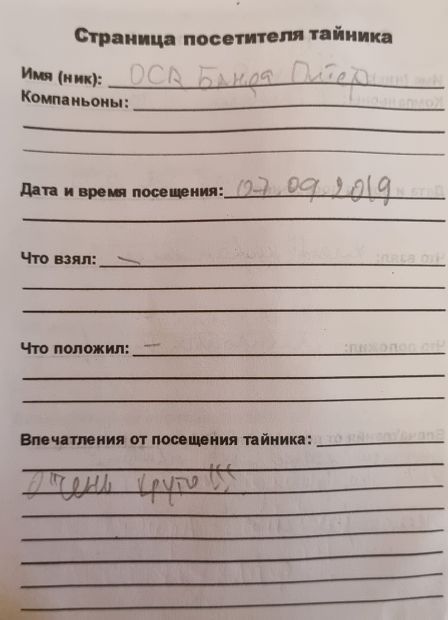 Страница посетителя тайника
Имя (ник): ОСА Банда Питер
Компаньоны:
Дата и время посещения: 07 09 2019
Что взял: —
Что положил: —
Впечатления от посещения тайника:
Очень круто!!!